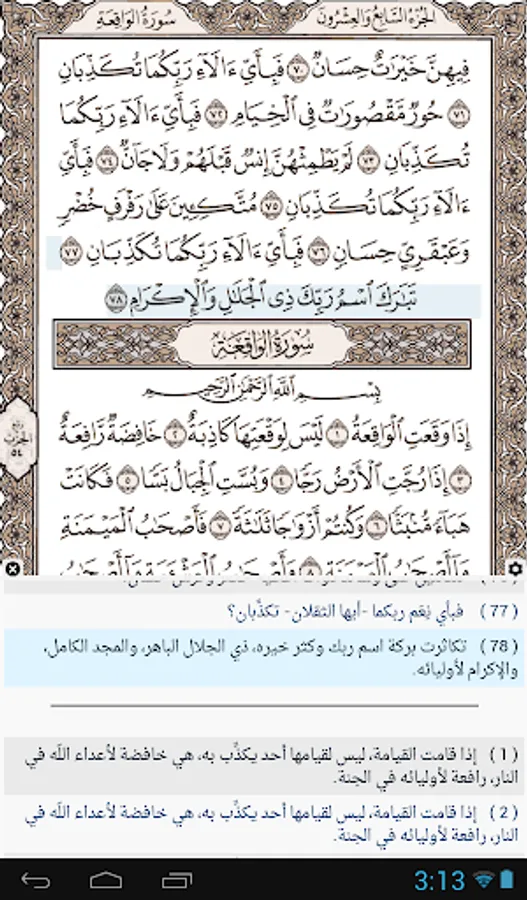 سُورَةُ الوَاقِعَةِ الجُزْءُ السَّابِعُ وَالعِشْرُونَ
فِيهِنَّ خَيْرَاتٌ حِسَانٌ ﴿٧٠﴾ فَبِأَيِّ ءَالَآءِ رَبِّكُمَا تُكَذِّبَانِ
﴿٧١﴾ حُورٌ مَّقْصُورَاتٌ فِي الْخِيَامِ ﴿٧٢﴾ فَبِأَيِّ ءَالَآءِ رَبِّكُمَا
تُكَذِّبَانِ ﴿٧٣﴾ لَمْ يَطْمِثْهُنَّ إِنسٌ قَبْلَهُمْ وَلَا جَانٌّ ﴿٧٤﴾ فَبِأَيِّ
ءَالَآءِ رَبِّكُمَا تُكَذِّبَانِ ﴿٧٥﴾ مُتَّكِـِٔينَ عَلَىٰ رَفْرَفٍ خُضْرٍ
وَعَبْقَرِيٍّ حِسَانٍ ﴿٧٦﴾ فَبِأَيِّ ءَالَآءِ رَبِّكُمَا تُكَذِّبَانِ ﴿٧٧﴾
تَبَارَكَ اسْمُ رَبِّكَ ذِي الْجَلَالِ وَالْإِكْرَامِ ﴿٧٨﴾
سُورَةُ الوَاقِعَةِ
بِسْمِ اللَّهِ الرَّحْمَٰنِ الرَّحِيمِ
إِذَا وَقَعَتِ الْوَاقِعَةُ ﴿١﴾ لَيْسَ لِوَقْعَتِهَا كَاذِبَةٌ ﴿٢﴾ خَافِضَةٌ رَّافِعَةٌ
﴿٣﴾ إِذَا رُجَّتِ الْأَرْضُ رَجًّا ﴿٤﴾ وَبُسَّتِ الْجِبَالُ بَسًّا ﴿٥﴾ فَكَانَتْ
هَبَاءً مُّنۢبَثًّا ﴿٦﴾ وَكُنتُمْ أَزْوَاجًا ثَلَاثَةً ﴿٧﴾ فَأَصْحَابُ الْمَيْمَنَةِ
ربع
الحزب
٥٤
(77) فبأي نِعَم ربكما -أيها الثقلان- تكذِّبان؟
(78) تكاثرت بركة اسم ربك وكثر خيره، ذي الجلال الباهر، والمجد الكامل،
والإكرام لأوليائه.
(1) إذا قامت القيامة، ليس لقيامها أحد يكذِّب به، هي خافضة لأعداء الله في
النار، رافعة لأوليائه في الجنة.
(2) إذا قامت القيامة، ليس لقيامها أحد يكذِّب به، هي خافضة لأعداء الله في
النار، رافعة لأوليائه في الجنة.
3:13